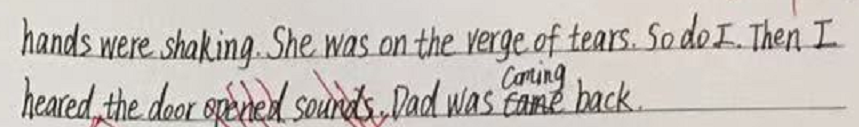 hands were shaking. She was on the verge of tears. So do I. Then I
Coming
heared, the door opened sounds. Dad was came back.